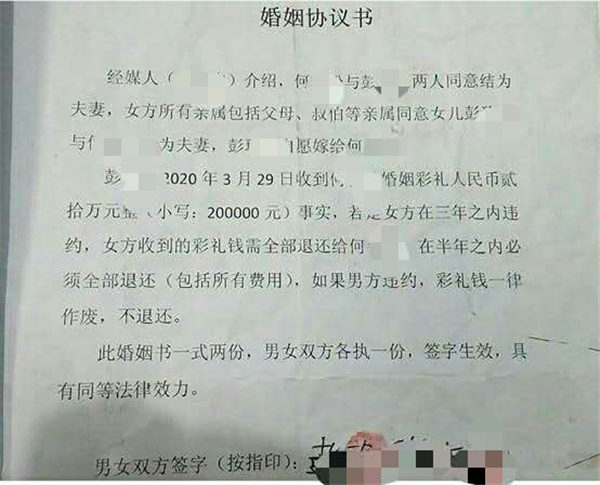 婚姻协议书
经媒人（ ）介绍，何 与彭 两人同意结为
夫妻，女方所有亲属包括父母、叔伯等亲属同意女儿彭
与 为夫妻，彭 自愿嫁给何
彭 2020年3月29日收到何 婚姻彩礼人民币贰
拾万元整（小写：200000元）事实，若是女方在三年之内违
约，女方收到的彩礼钱需全部退还给何 在半年之内必
须全部退还（包括所有费用），如果男方违约，彩礼钱一律
作废，不退还。
此婚姻书一式两份，男女双方各执一份，签字生效，具
有同等法律效力。
男女双方签字（按指印）：